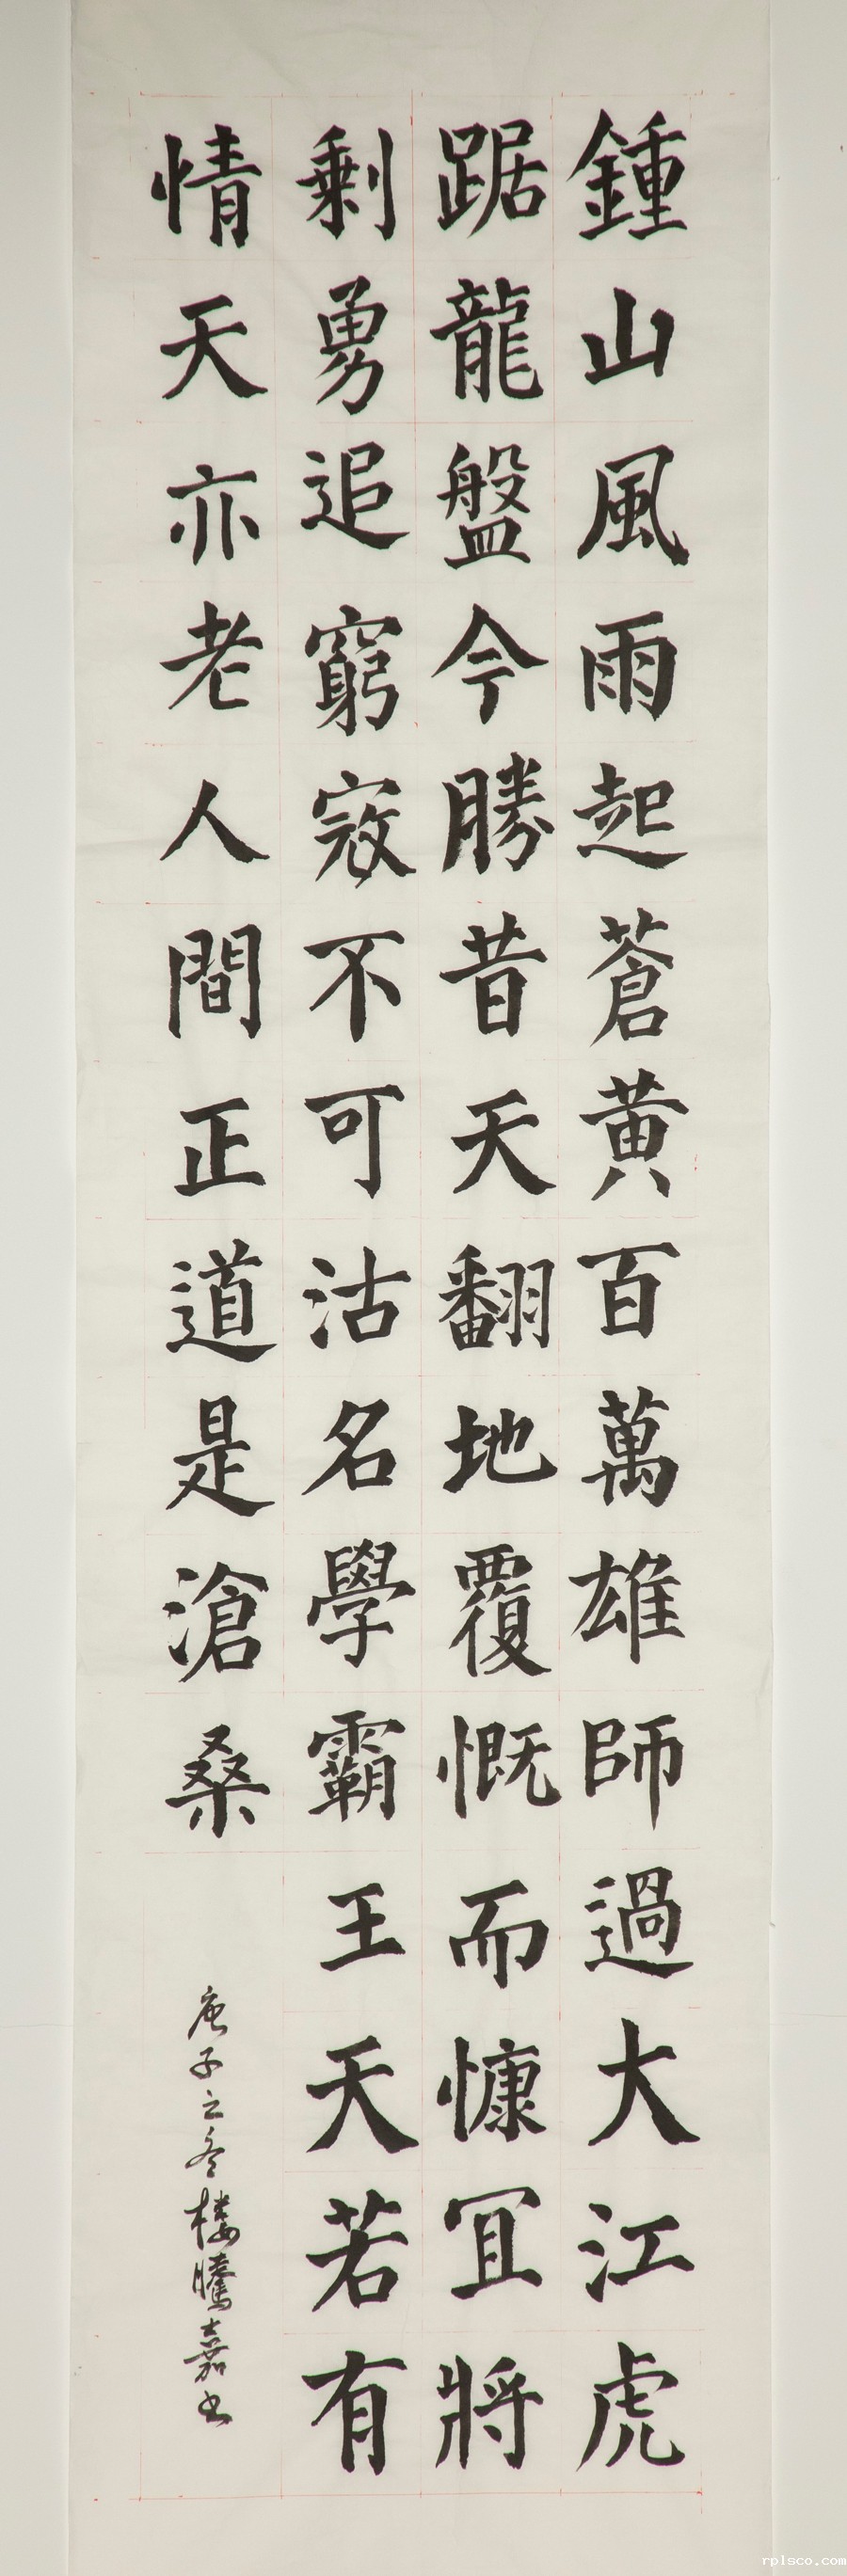 鍾山風雨起蒼黃百萬雄師過大江虎
踞龍盤今勝昔天翻地覆慨而慷宜將
剩勇追窮寇不可沽名學霸王天若有
情天亦老人間正道是滄桑
庚子之冬樓騰嘉书
rplsco.com